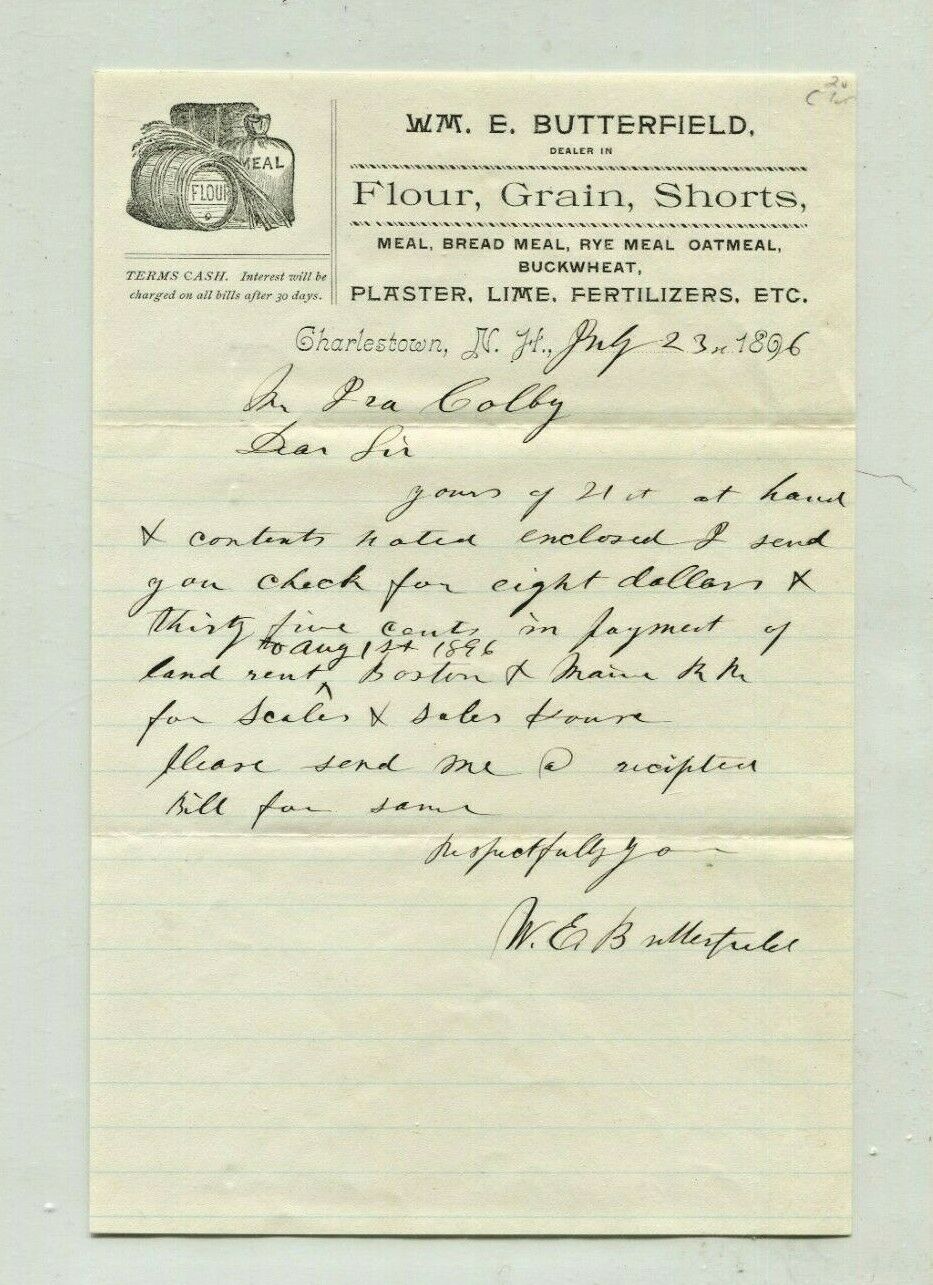 MEAL
FLOUR
WM. E. BUTTERFIELD,
DEALER IN
Flour, Grain, Shorts,
MEAL, BREAD MEAL, RYE MEAL OATMEAL,
BUCKWHEAT,
PLASTER, LIME, FERTILIZERS, ETC.
TERMS CASH. Interest will be
charged on all bills after 30 days.
Charlestown, N. H., July 23rd 1896
Mr Ira Colby
Dear Sir
yours of 21st at hand
& contents noted enclosed I send
you check for eight dollars &
thirty five cents in payment of
to Aug 1st 1896
land rent ^ Boston & Maine RR
for Scales & Sales House
Please send me a recipted
Bill for same
Respectfully your
W. E. Butterfield